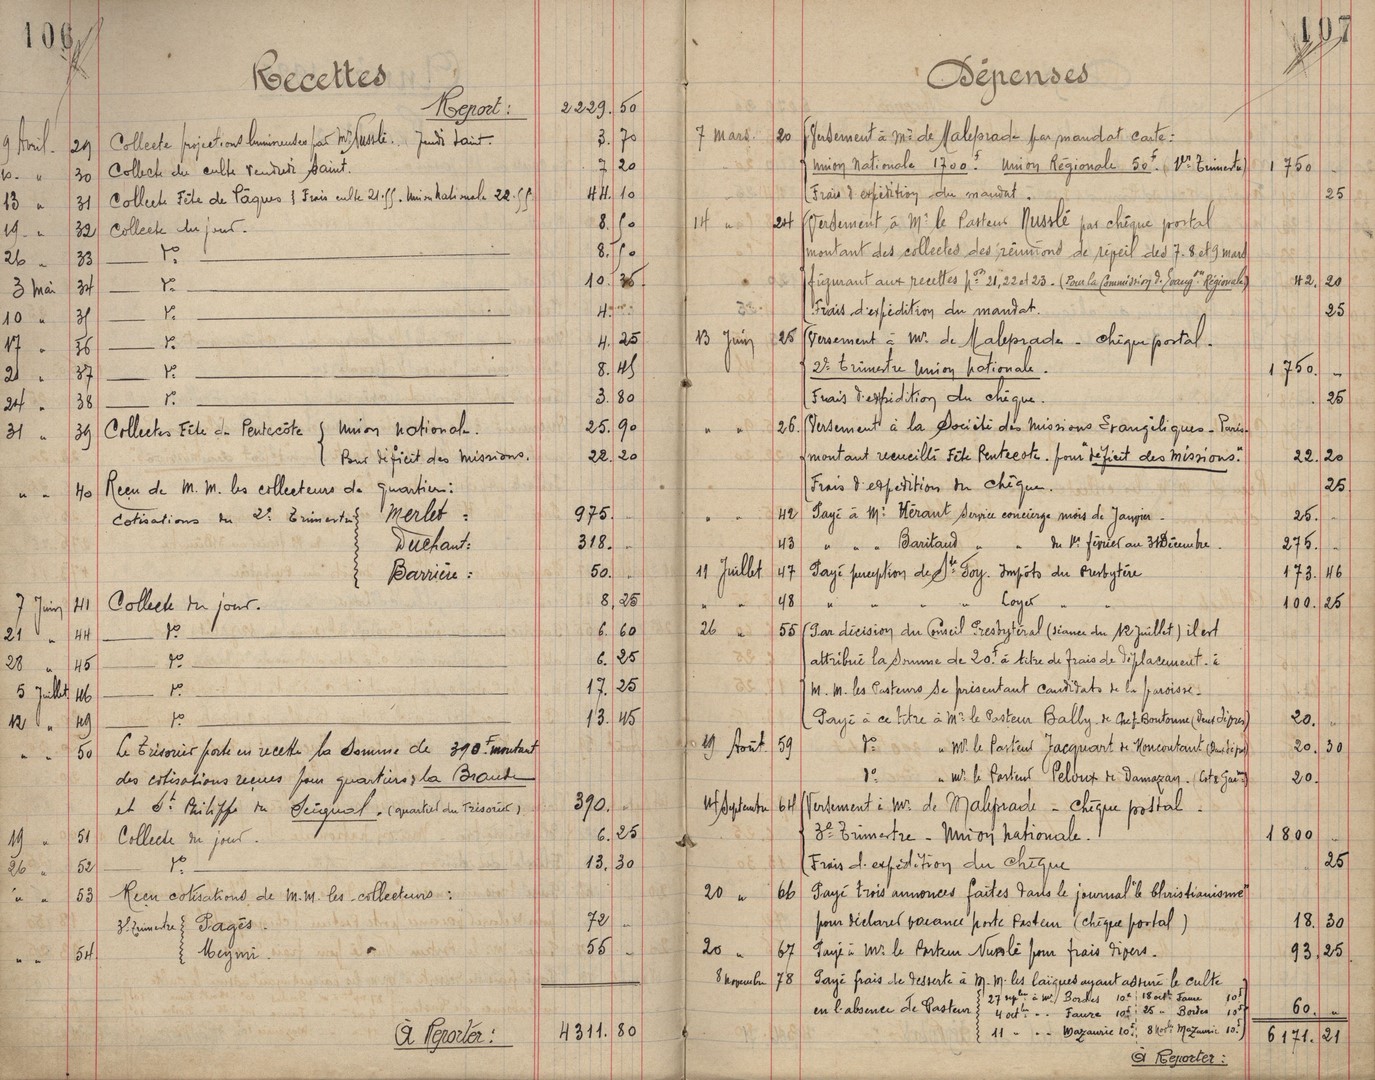 106
Recettes
Report : 2229. 50
9 Avril. 29 Collecte projections lumineuses par Mr. Nusslé. Jeudi Saint. 3. 70
10. " 30 Collecte du culte Vendredi Saint. 7 20
13 " 31 Collecte Fête de Pâques { Frais culte 21.55. Union Nationale 22.55 44. 10
19. " 32 Collecte du jour. 8. 50
26 " 33 —— do. —— 8. 50
3 Mai 34 —— do. —— 10. 35
10 " 35 —— do. —— 4.
17 " 36 —— do. —— 4. 25
21 " 37 —— do. —— 8. 45
24 " 38 —— do. —— 3. 80
31 " 39 Collectes Fête de Pentecôte { Union Nationale. 25. 90
Pour déficit des Missions. 22. 20
" " 40 Reçu de M.M. les collecteurs de quartier :
Cotisations du 2e Trimestre { Merlet : 975. "
Duchant : 318. "
Barrière : 50. "
7 Juin 41 Collecte du jour. 8, 25
21 " 44 —— do. —— 6. 60
28 " 45 —— do. —— 6. 25
5 Juillet 46 —— do. —— 17. 25
12 " 49 —— do. —— 13. 45
" " 50 Le Trésorier porte en recette la somme de 390 F. montant
des cotisations reçues pour quartiers, la Beauze
et St. Philippe du Seignal. (quartier du Trésorier) 390. "
19 " 51 Collecte du jour. 6. 25
26 " 52 —— do. —— 13, 30
" " 53 Reçu cotisations, de M.M. les collecteurs :
3e trimestre { Pagès. 72 "
" " 54 Meymi. 55 "
À Reporter : 4311. 80
107
Dépenses
7 mars. 20 Versement à Mr. de Maleprade par mandat carte :
Union Nationale 1700 f. Union Régionale 50 f. (1er Trimestre) 1 750 "
Frais d'expédition du mandat. 25
14 " 24 Versement à Mr. le Pasteur Nusslé par chèque postal
montant des collectes des réunions de réveil des 7. 8 et 9 mars
figurant aux recettes nos 21, 22 et 23. (Pour la Commission d'Évangon Régionale) 42, 20
Frais d'expédition du mandat. 25
13 Juin 25 Versement à Mr. de Maleprade - chèque postal.
2e Trimestre Union Nationale. 1 750. "
Frais d'expédition du chèque. . 25
" " 26. Versement à la Société des Missions Evangéliques - Paris.
montant recueilli Fête Pentecôte. pour "déficit des missions." 22. 20
Frais d'expédition du chèque. 25
" " 42 Payé à Mr. Hérant service concierge mois de Janvier - 25. "
43 " " " Baritaud " " du 1er février au 31 Décembre. 275. "
11 Juillet 47 Payé perception de Ste Foy. Impôts du Presbytère 173. 46
" " 48 " " " " Loyer " " 100. 25
26 " 55 Par décision du Conseil Presbytéral (séance du 12 Juillet) il est
attribué la somme de 20 f. à titre de frais de déplacement à
M.M. les Pasteurs se présentant candidats de la paroisse.
Payé à ce titre à Mr. le Pasteur Bally de Chef-Boutonne (Deux Sèvres) 20. "
19 Août 59 do. " Mr. le Pasteur Jacquart de Moncoutant (Deux Sèvres) 20. 30
do. " Mr. le Pasteur Peloux de Damazan. (Lot & Gae) 20.
14 Septembre 64 Versement à Mr. de Maleprade - chèque postal.
3e Trimestre - Union Nationale. 1 800 "
Frais d'expédition du chèque 25
20 " 66 Payé trois annonces faites dans le journal "le Christianisme"
pour déclarer vacance poste Pasteur (chèque postal) 18. 30
20 " 67 Payé à Mr. le Pasteur Nusslé pour frais divers. 93, 25
8 Novembre 78 Payé frais de desserte à M.M. les laïques ayant assuré le culte
en l'absence de Pasteur { 27 septbre à Mr. Bordes 10 f. 18 octbre Faure 10 f. 60. "
4 octbre " " Faure 10 f. 25 " Bordes 10 f.
11 " " " Mazaurie 10 f. 8 Novbre Mazaurie 10 f. 6171. 21
À Reporter :